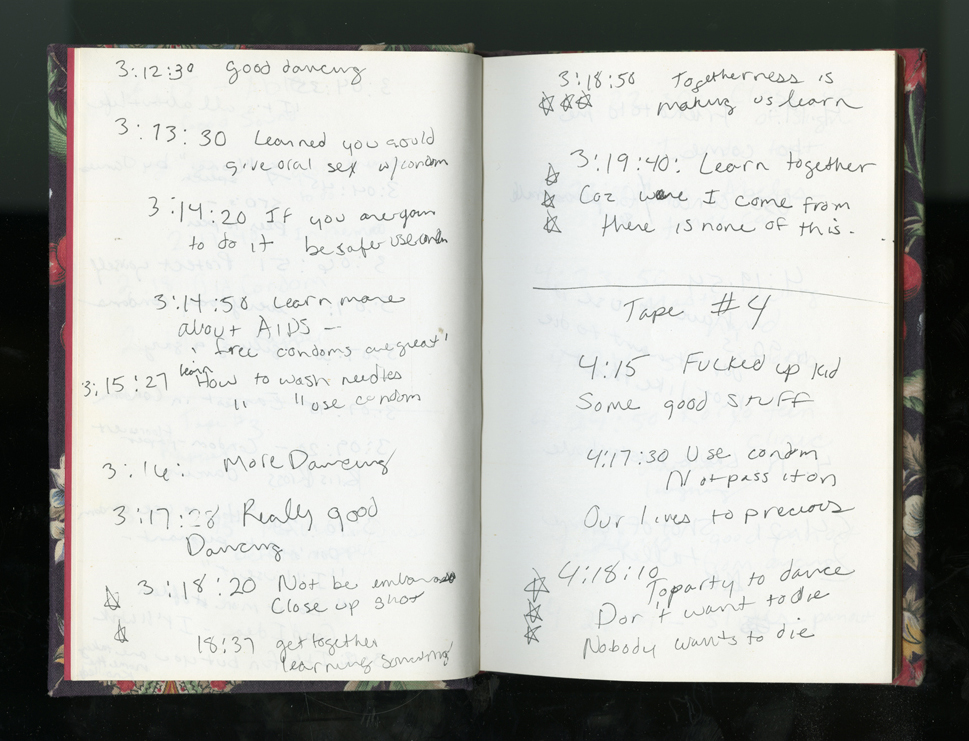 3:12:30 Good dancing
3:13:30 Learned you could
give oral sex w/condom
3:14:20 If you are goin
to do it be safer use condm
3:14:50 Learn more
about AIDS —
"free condoms are great"
learn
3:15:27 How to wash needles
" " use condom
3:16: More Dancing
3:17:28 Really good
Dancing
3:18:20 Not be embarass
Close up shot
18:37 get together
learning something
3:18:50 Togetherness is
making us learn
3:19:40: Learn together
Coz were I come from
there is none of this.
Tape #4
4:15 Fucked up kid
Some good stuff
4:17:30 Use condm
Not pass it on
Our lives to precious
4:18:10 To party to dance
Don't want to die
Nobody wants to die